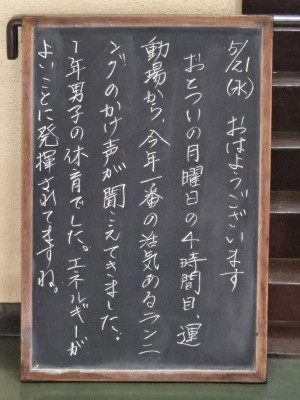 5/21(水) おはようございます
おとついの月曜日の4時間目、運
動場から、今年一番の活気あるランニ
ングのかけ声が聞こえてきました。
1年男子の体育でした。エネルギーが
よいことに発揮されてますね。